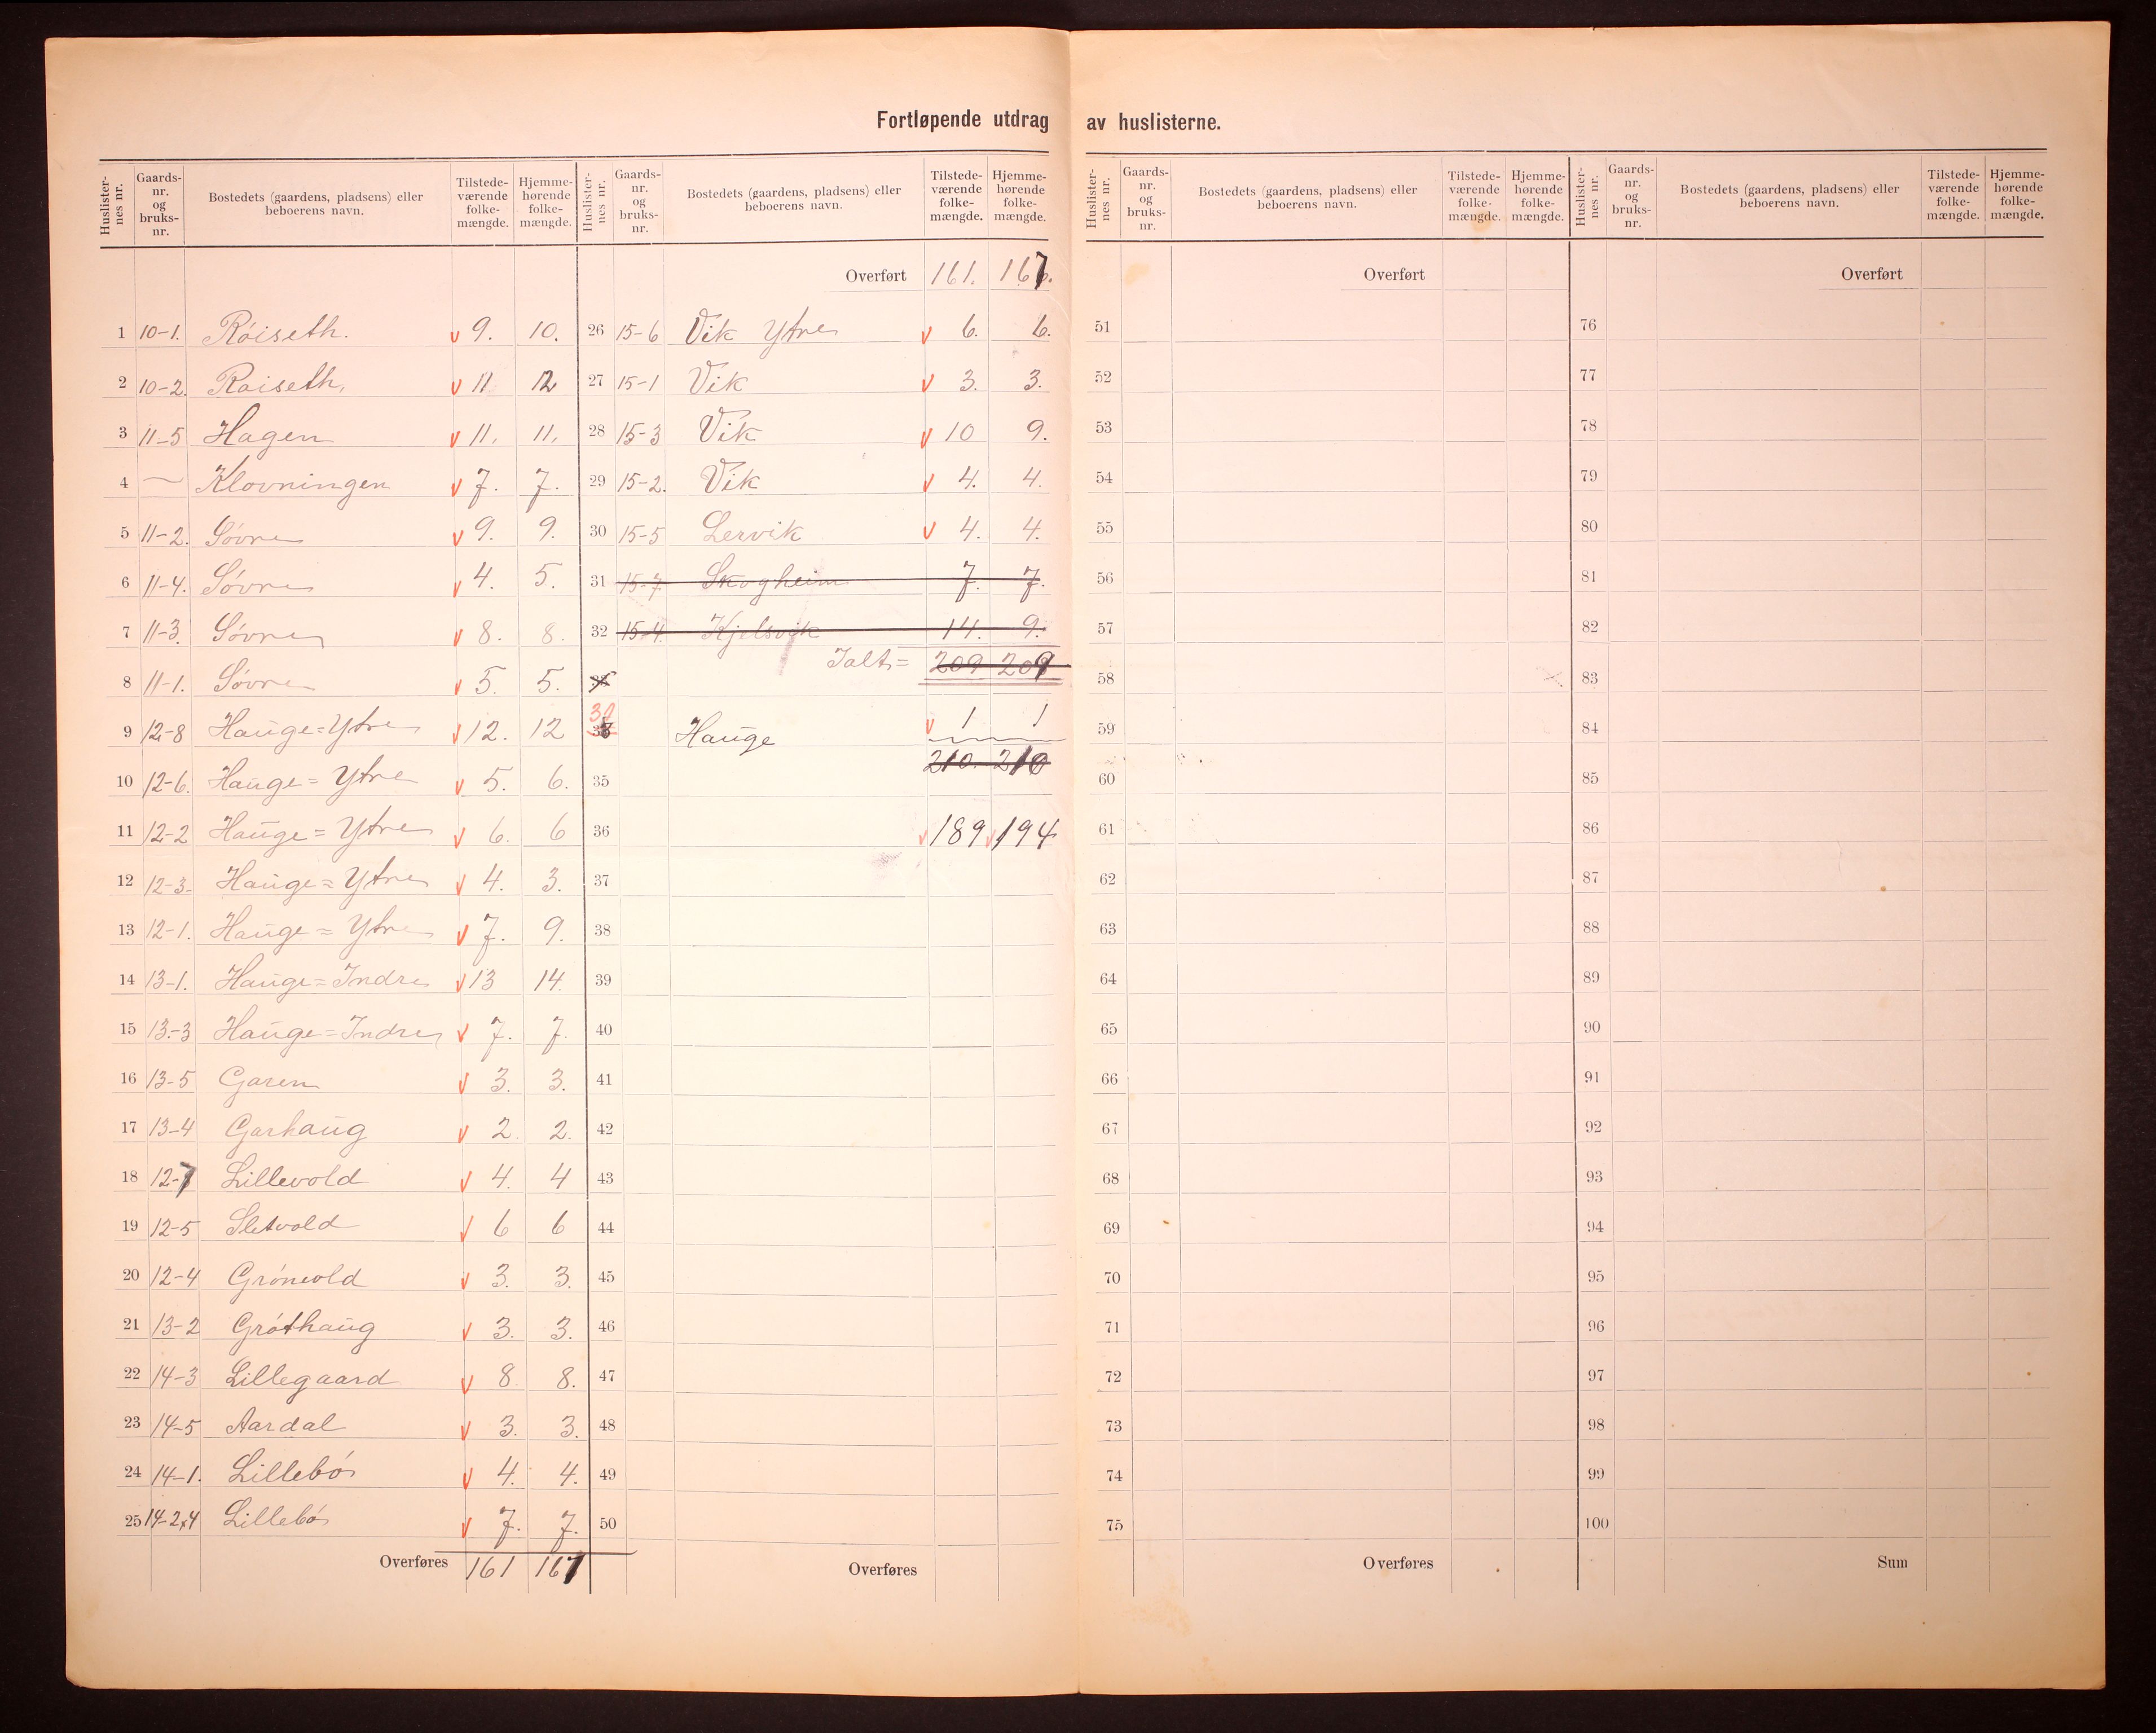 Fortløpende utdrag av huslisterne.
Huslister-nes nr. Gaards-nr. og bruks-nr. Bostedets (gaardens, pladsens) eller beboerens navn. Tilstede-værende folke-mængde. Hjemme-hørende folke-mængde.
1 10-1. Röiseth. v 9. 10.
2 10-2. Roiseth. v 11 12
3 11-5 Hagen v 11. 11.
4 — Klovningen v 7. 7.
5 11-2. Sövre v 9. 9.
6 11-4. Sövre v 4. 5.
7 11-3. Sövre v 8. 8.
8 11-1. Sövre v 5. 5.
9 12-8 Hauge=Ytre v 12. 12
10 12-6. Hauge=Ytre v 5. 6.
11 12-2 Hauge=Ytre v 6. 6
12 12-3- Hauge=Ytre v 4. 3.
13 12-1. Hauge=Ytre v 7. 9.
14 13-1. Hauge=Indre v 13 14.
15 13-3 Hauge=Indre v 7. 7.
16 13-5 Garen v 3. 3.
17 13-4 Garhaug v 2. 2.
18 12-7 Lillevold v 4. 4
19 12-5 Sletvold v 6 6
20 12-4 Grónvold v 3. 3.
21 13-2 Gróthaug v 3. 3.
22 14-3 Lillegaard v 8 8.
23 14-5 Aardal v 3. 3.
24 14-1. Lillebó v 4. 4.
25 14-2,4 Lillebó v 7. 7.
Overføres 161 167
Huslister-nes nr. Gaards-nr. og bruks-nr. Bostedets (gaardens, pladsens) eller beboerens navn. Tilstede-værende folke-mængde. Hjemme-hørende folke-mængde.
Overført 161. 167.
26 15-6 Vik Ytre v 6. 6.
27 15-1 Vik v 3. 3.
28 15-3 Vik v 10 9.
29 15-2. Vik v 4. 4.
30 15-5 Lervik v 4. 4.
31 15-7. Skogheim 7. 7.
32 15-4. Kjelsvik 14. 9.
Ialt= 209 209
Hauge v 1 1
210. 210
35
36 v 189 v 194
37
38
39
40
41
42
43
44
45
46
47
48
49
50
Overføres
Huslister-nes nr. Gaards-nr. og bruks-nr. Bostedets (gaardens, pladsens) eller beboerens navn. Tilstede-værende folke-mængde. Hjemme-hørende folke-mængde.
Overført
51
52
53
54
55
56
57
58
59
60
61
62
63
64
65
66
67
68
69
70
71
72
73
74
75
Overføres
Huslister-nes nr. Gaards-nr. og bruks-nr. Bostedets (gaardens, pladsens) eller beboerens navn. Tilstede-værende folke-mængde. Hjemme-hørende folke-mængde.
Overført
76
77
78
79
80
81
82
83
84
85
86
87
88
89
90
91
92
93
94
95
96
97
98
99
100
Sum